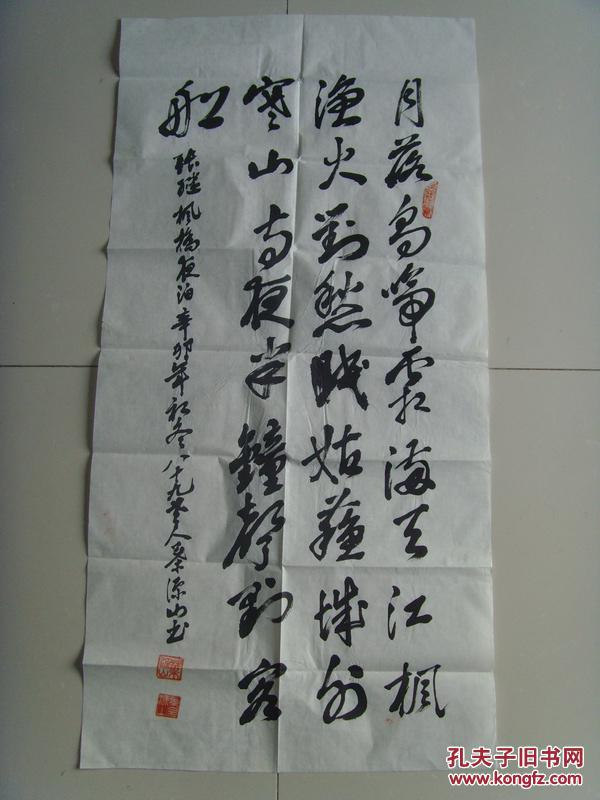 月落烏啼霜滿天江楓
漁火對愁眠姑蘇城外
寒山寺夜半鐘聲到客
船
張继楓橋夜泊辛卯年初冬八十九老人山书
孔夫子旧书网
www.kongfz.com